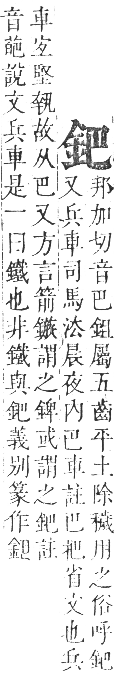 鈀邦加切音巴鉏屬五齒平土除穢用之俗呼鈀
又兵車司馬法晨夜內巴車註巴耙省文也兵
車宜堅𦎫故从巴又方言箭鏃謂之錍或謂之鈀註
音葩說文兵車是一曰鐵也非鐵與鈀義別篆作䤔